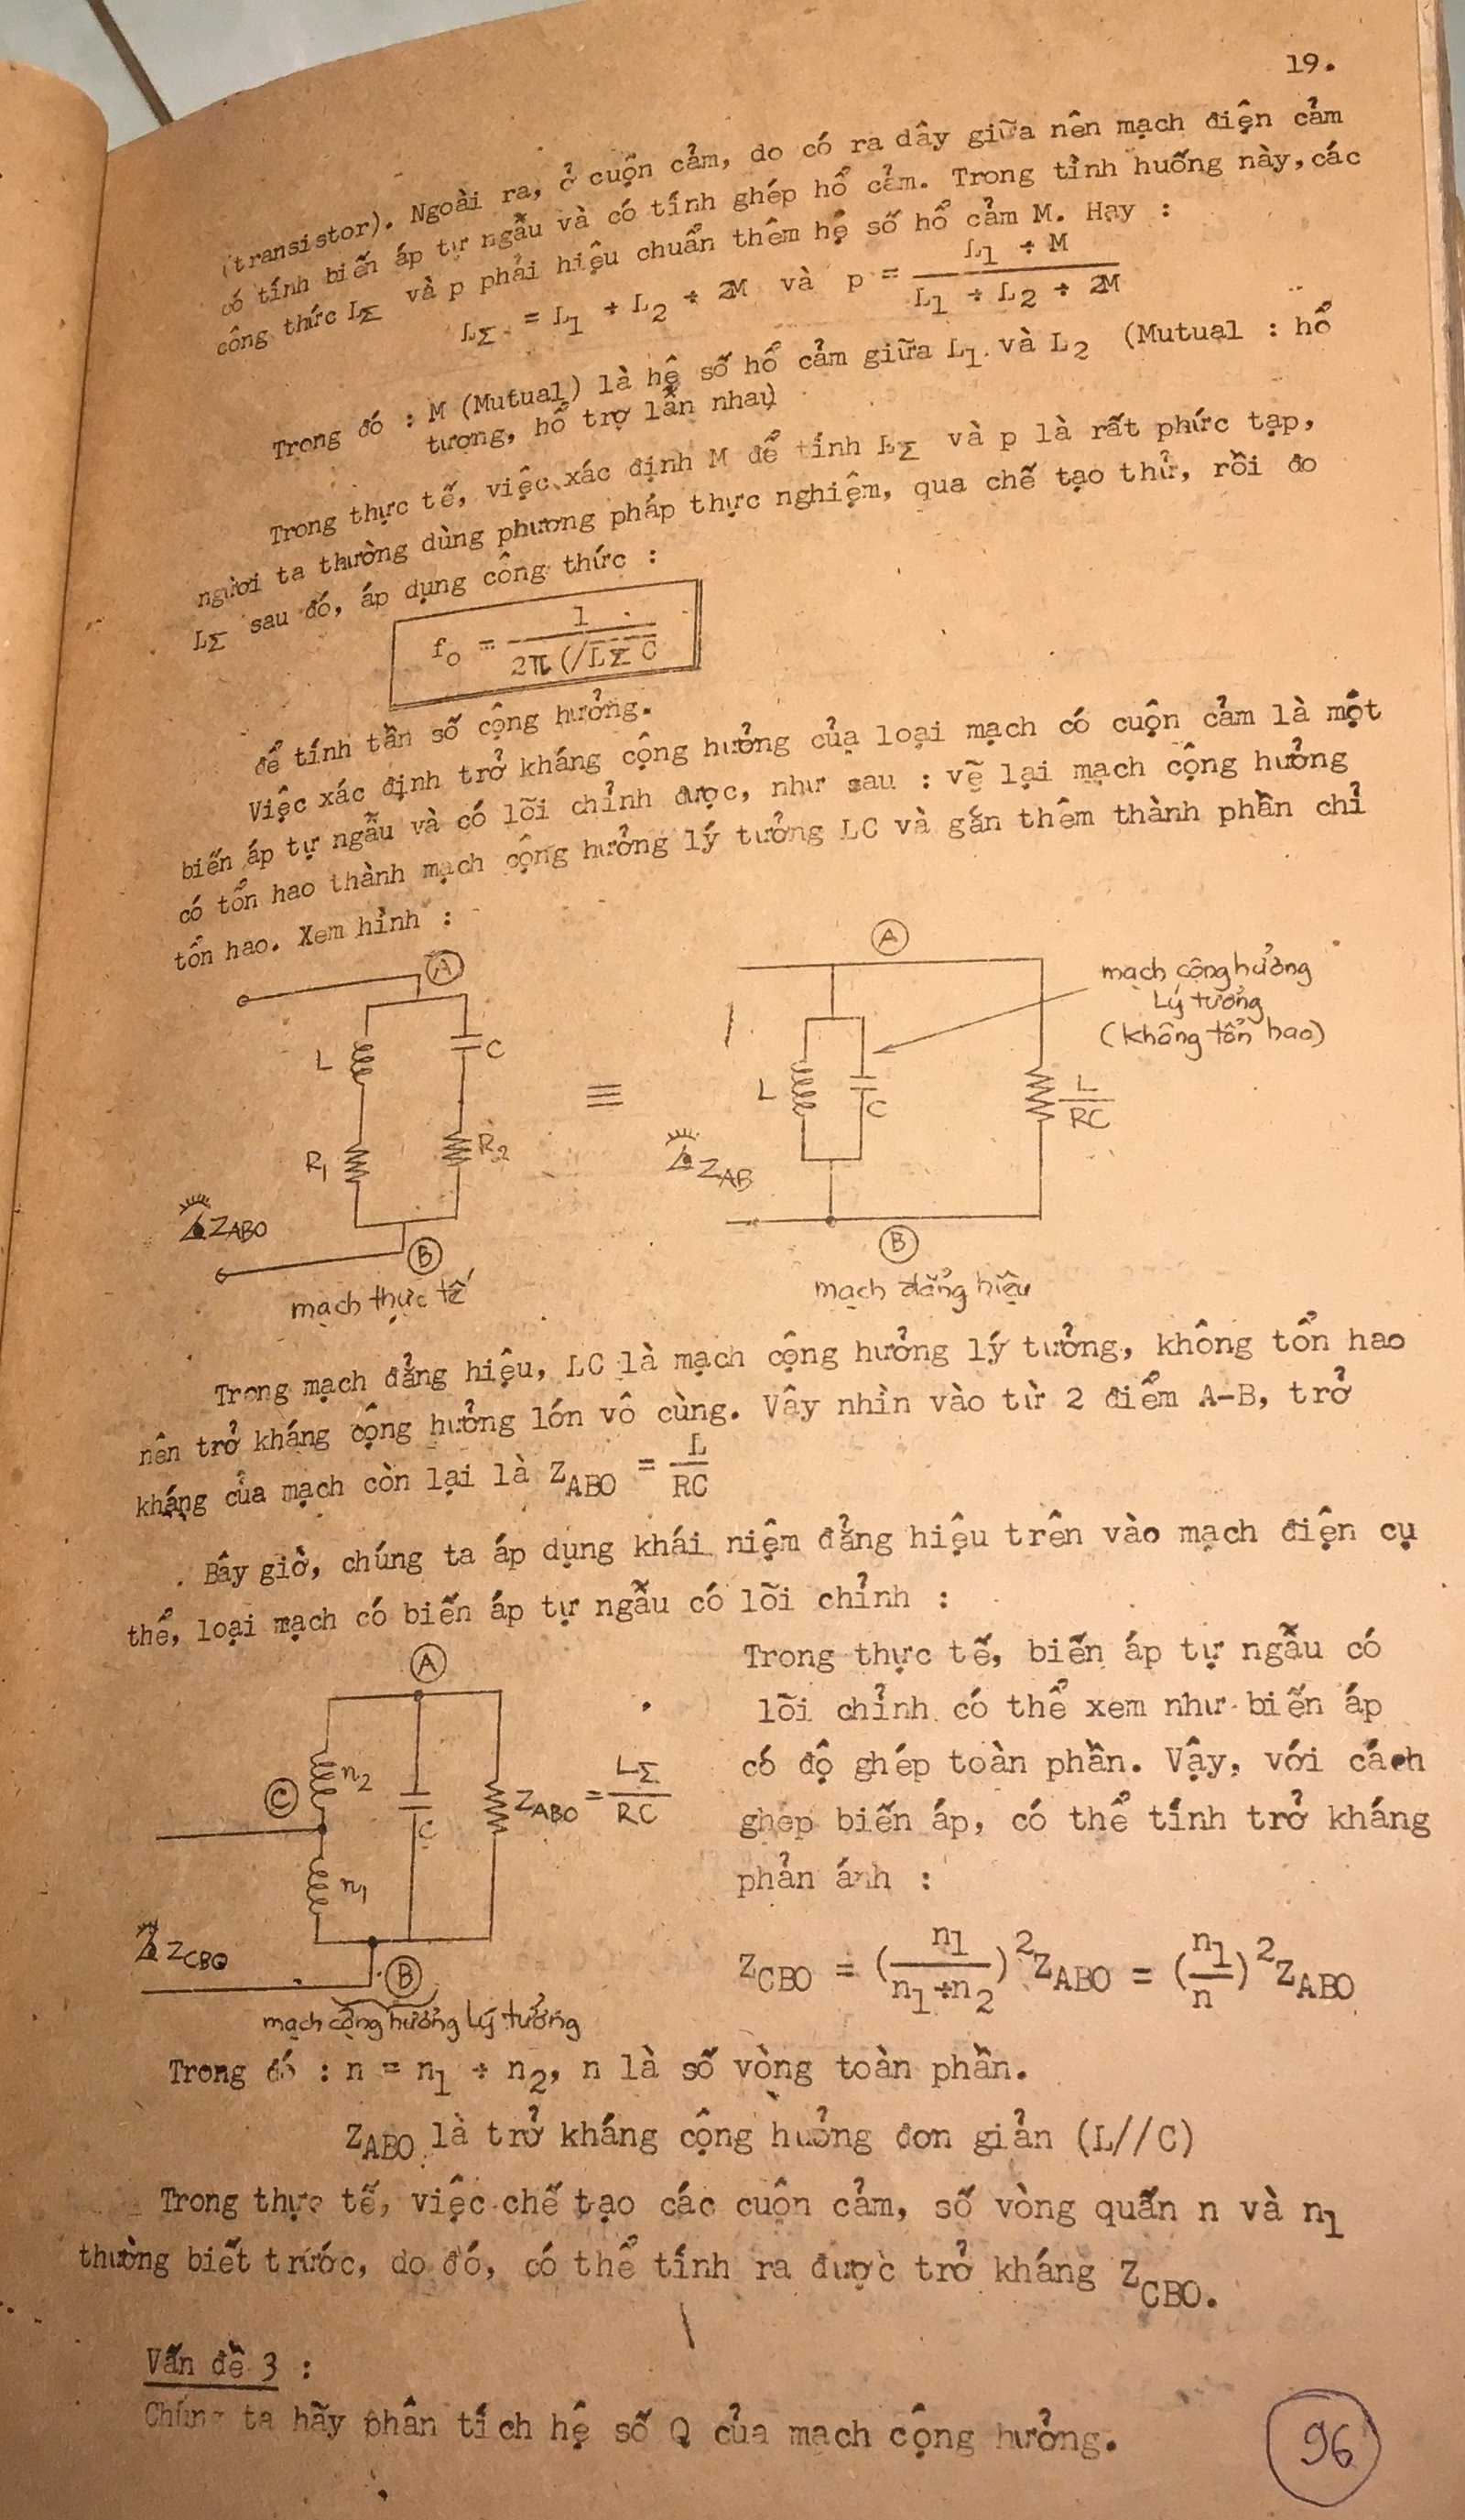 19.
(transistor). Ngoài ra, ở cuộn cảm, do có ra dây giữa nên mạch điện cảm
có tính biến áp tự ngẫu và có tính ghép hổ cảm. Trong tình huống này, các
công thức L∑ và p phải hiệu chuẩn thêm hệ số hổ cảm M. Hay :
L∑ = L1 + L2 + 2M và p = (L1 + M) / (L1 + L2 + 2M)
Trong đó : M (Mutual) là hệ số hổ cảm giữa L1 và L2 (Mutual : hổ
tương, hổ trợ lẫn nhau)
Trong thực tế, việc xác định M để tính L∑ và p là rất phức tạp,
người ta thường dùng phương pháp thực nghiệm, qua chế tạo thử, rồi đo
L∑ sau đó, áp dụng công thức :
fo = 1 / 2π√L∑C
để tính tần số cộng hưởng.
Việc xác định trở kháng cộng hưởng của loại mạch có cuộn cảm là một
biến áp tự ngẫu và có lõi chỉnh được, như sau : vẽ lại mạch cộng hưởng
có tổn hao thành mạch cộng hưởng lý tưởng LC và gắn thêm thành phần chỉ
tổn hao. Xem hình :
A
L
C
R1
R2
ZABO
B
mạch thực tế
≡
A
mạch cộng hưởng
Lý tưởng
(không tổn hao)
L
C
L/RC
ZAB
B
mạch đẳng hiệu
Trong mạch đẳng hiệu, LC là mạch cộng hưởng lý tưởng, không tổn hao
nên trở kháng cộng hưởng lớn vô cùng. Vây nhìn vào từ 2 điểm A-B, trở
kháng của mạch còn lại là ZABO = L/RC
Bây giờ, chúng ta áp dụng khái niệm đẳng hiệu trên vào mạch điện cụ
thể, loại mạch có biến áp tự ngẫu có lõi chỉnh :
A
n2
C
C
ZABO = L∑/RC
n1
ZCBO
B
mạch cộng hưởng Lý tưởng
Trong thực tế, biến áp tự ngẫu có
lõi chỉnh có thể xem như biến áp
có độ ghép toàn phần. Vậy, với cách
ghép biến áp, có thể tính trở kháng
phản ánh :
ZCBO = (n1/(n1+n2))² ZABO = (n1/n)² ZABO
Trong đó : n = n1 + n2, n là số vòng toàn phần.
ZABO là trở kháng cộng hưởng đơn giản (L//C)
Trong thực tế, việc chế tạo các cuộn cảm, số vòng quấn n và n1
thường biết trước, do đó, có thể tính ra được trở kháng ZCBO.
Vấn đề 3 :
Chúng ta hãy phân tích hệ số Q của mạch cộng hưởng.
96